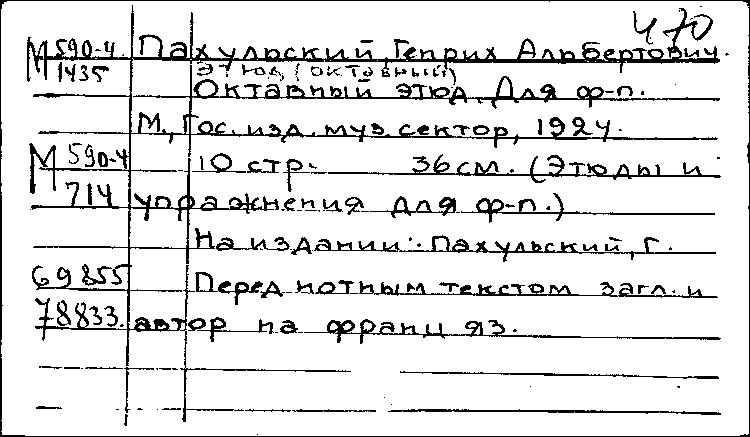 470
М 590-4 Пахульский, Генрих Альбертович.
1435 Этюд (октавный)
Октавный этюд. Для ф-п.
М., Гос. изд. муз. сектор, 1924.
М 590-4 10 стр. 36 см. (Этюды и
714 упражнения для ф-п.)
На издании: Пахульский, Г.
69855 Перед нотным текстом загл. и
78833. автор на франц яз.